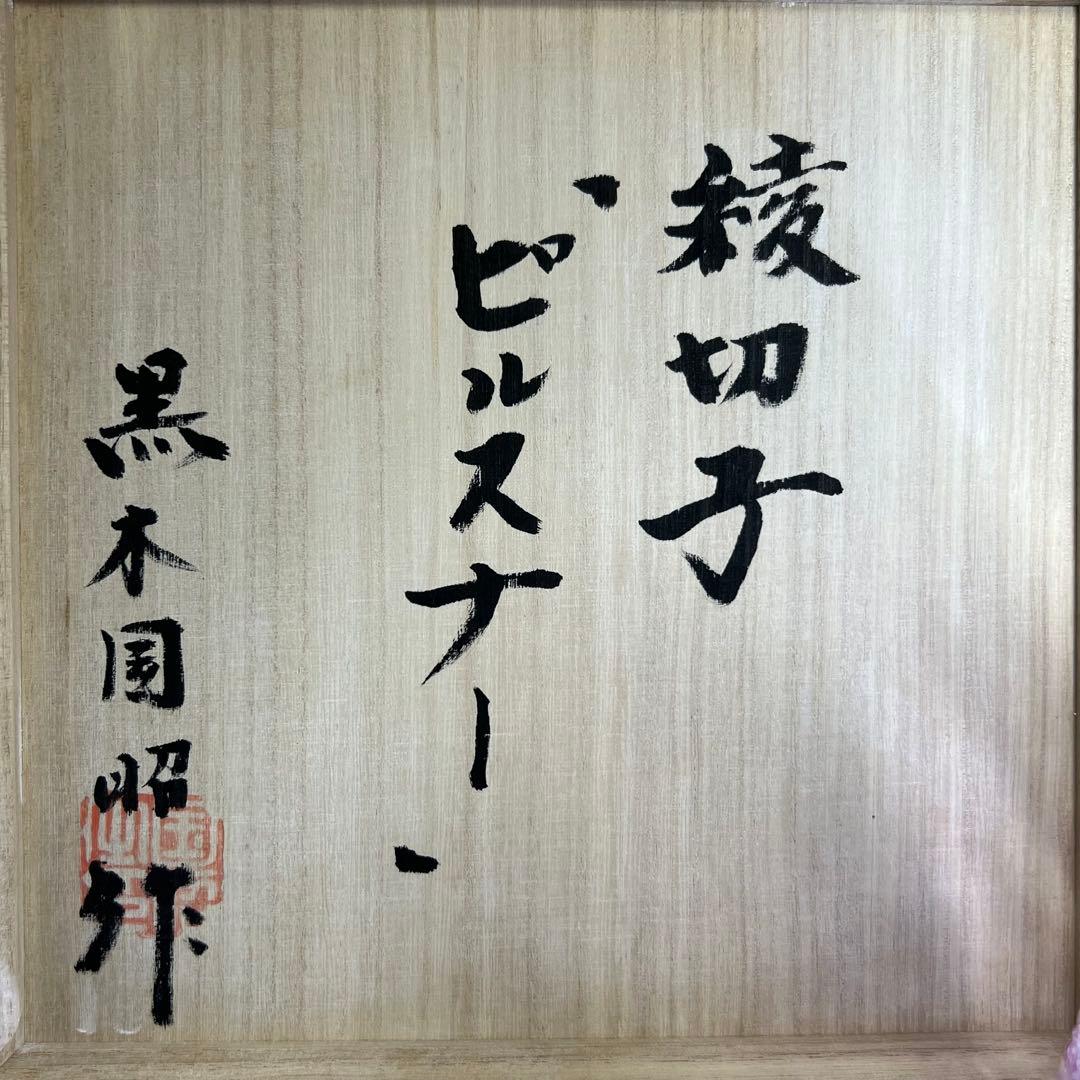 綾切子
、ピルスナー、
黒木国昭作